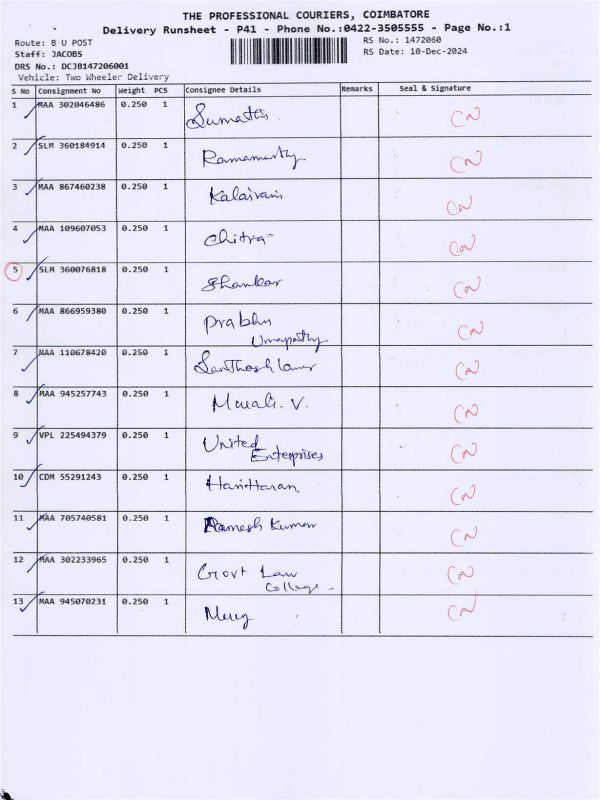 THE PROFESSIONAL COURIERS, COIMBATORE
Delivery Runsheet - P41 - Phone No.:0422-3505555 - Page No.:1
Route: B U POST
RS No.: 1472060
Staff: JACOBS
RS Date: 10-Dec-2024
DRS No.: DCJB147206001
Vehicle: Two Wheeler Delivery
S No Consignment No Weight PCS Consignee Details Remarks Seal & Signature
1 MAA 302046486 0.250 1 Sumathi CN
2 SLM 360184914 0.250 1 Ramamurthy CN
3 MAA 867460238 0.250 1 Kalaivani CN
4 MAA 109607053 0.250 1 Chitra CN
5 SLM 360076818 0.250 1 Shankar CN
6 MAA 866959380 0.250 1 Prabhu CN
Umapathy
7 MAA 110678420 0.250 1 CN
8 MAA 945257743 0.250 1 Murali. V. CN
9 VPL 225494379 0.250 1 United CN
Enterprises
10 CDM 55291243 0.250 1 HariHaran CN
11 MAA 705740581 0.250 1 Ramesh Kumar CN
12 MAA 302233965 0.250 1 Govt Law CN
College.
13 MAA 945070231 0.250 1 Mercy CN